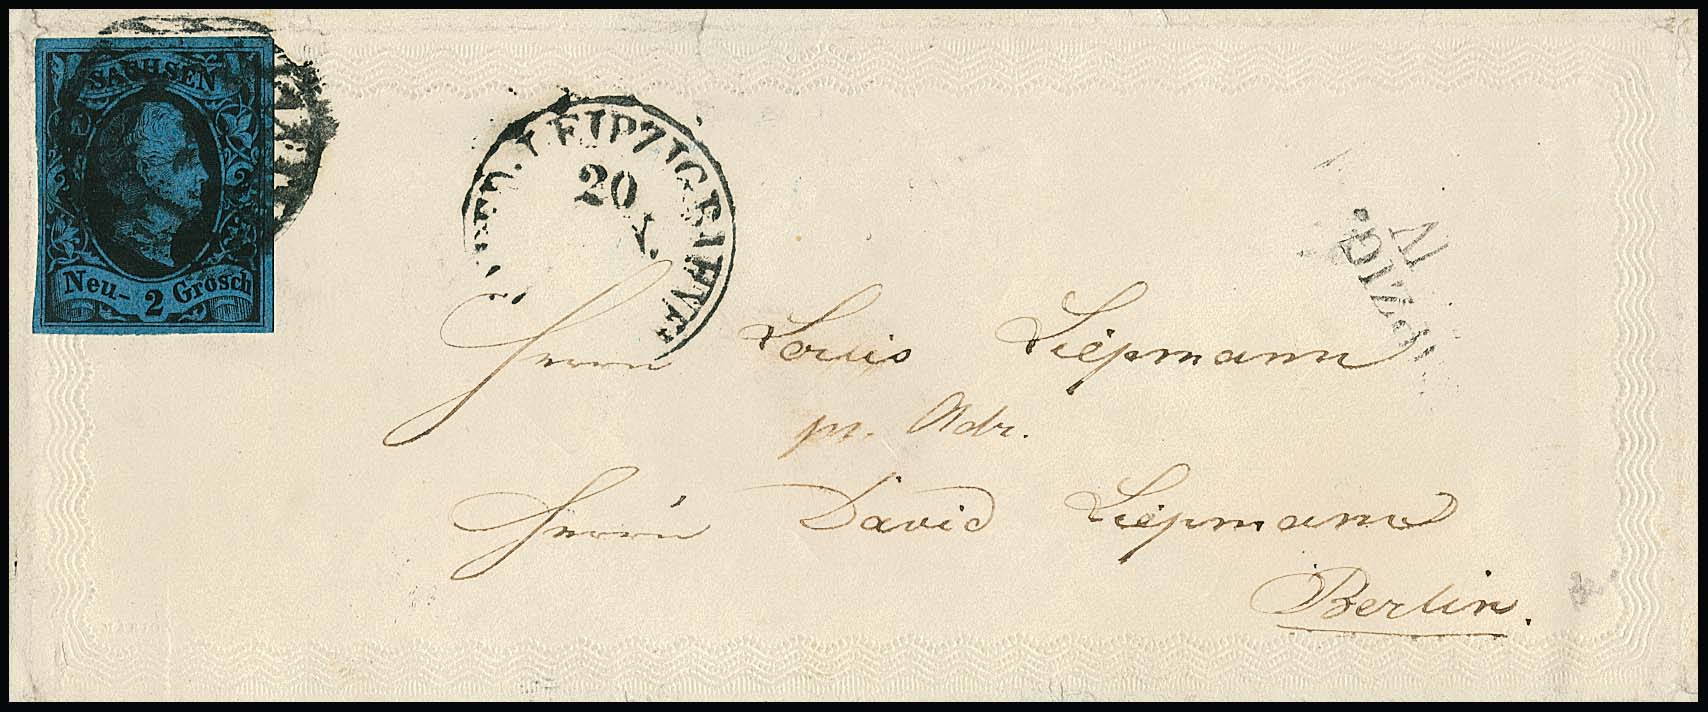 SACHSEN
Neu- 2 Grosch
LEIPZIG.BAHNH
20
V.
N
PZIG.
Herrn Louis Liepmann
pr. Adr.
Herrn David Liepmann
Berlin.